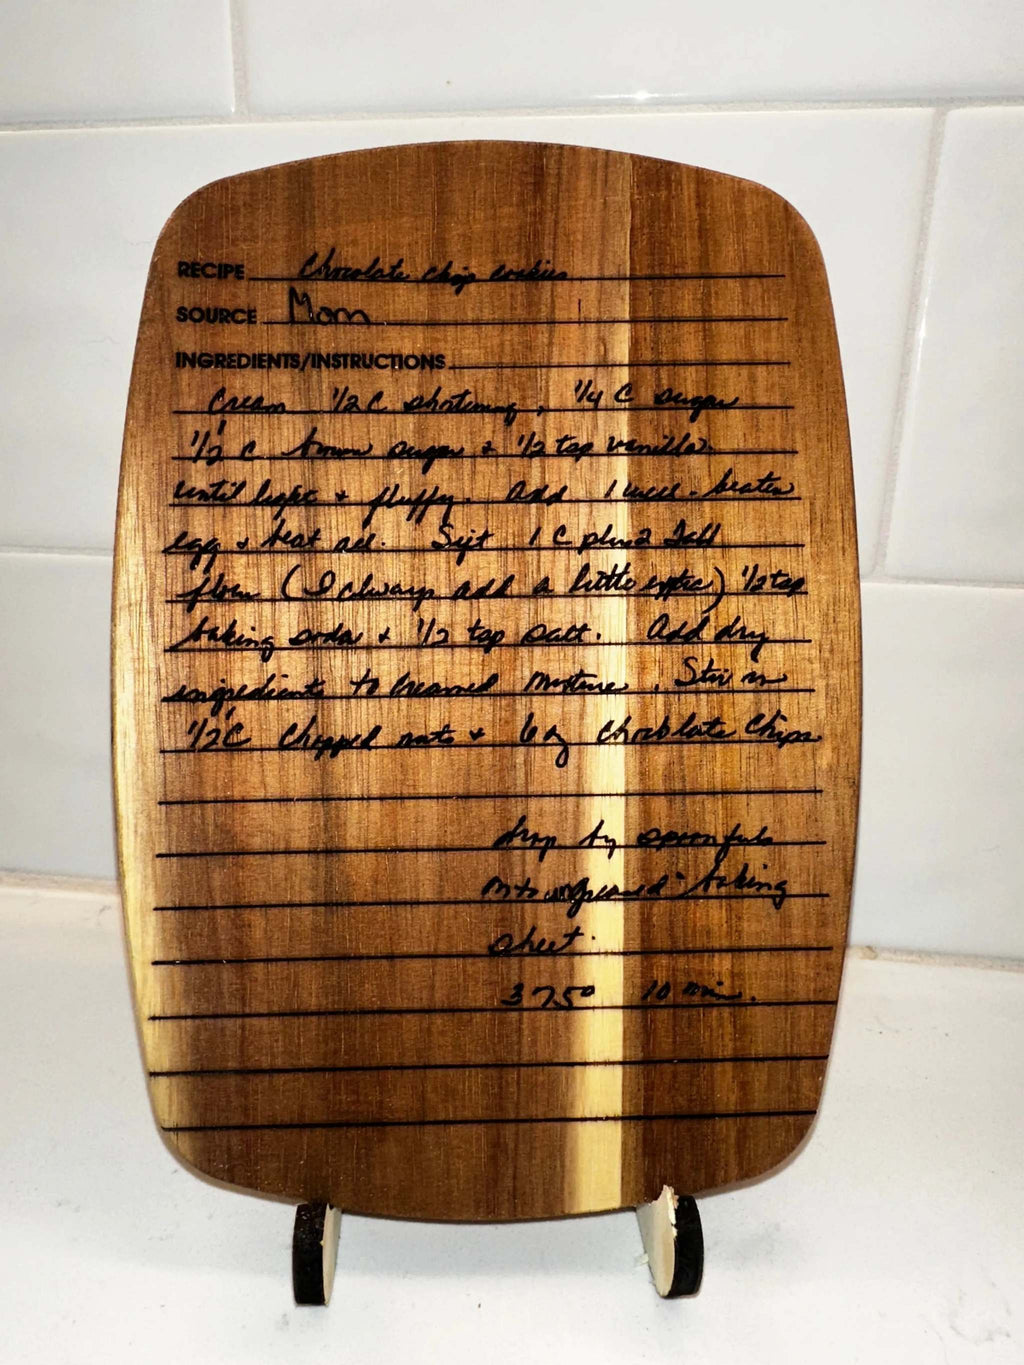 RECIPE Chocolate chip cookies
SOURCE Mom
INGREDIENTS/INSTRUCTIONS
Cream 1/2 C shortening, 1/4 C sugar
1/2 C brown sugar + 1/2 tsp vanilla
until light + fluffy. Add 1 well-beaten
egg + beat all. Sift 1 C plus 2 Tbl
flour (I always add a little extra) 1/2 tsp
baking soda + 1/2 tsp salt. Add dry
ingredients to creamed mixture. Stir in
1/2 C chopped nuts + 6 oz chocolate chips
drop by spoonfuls
onto ungreased baking
sheet.
375° 10 min.